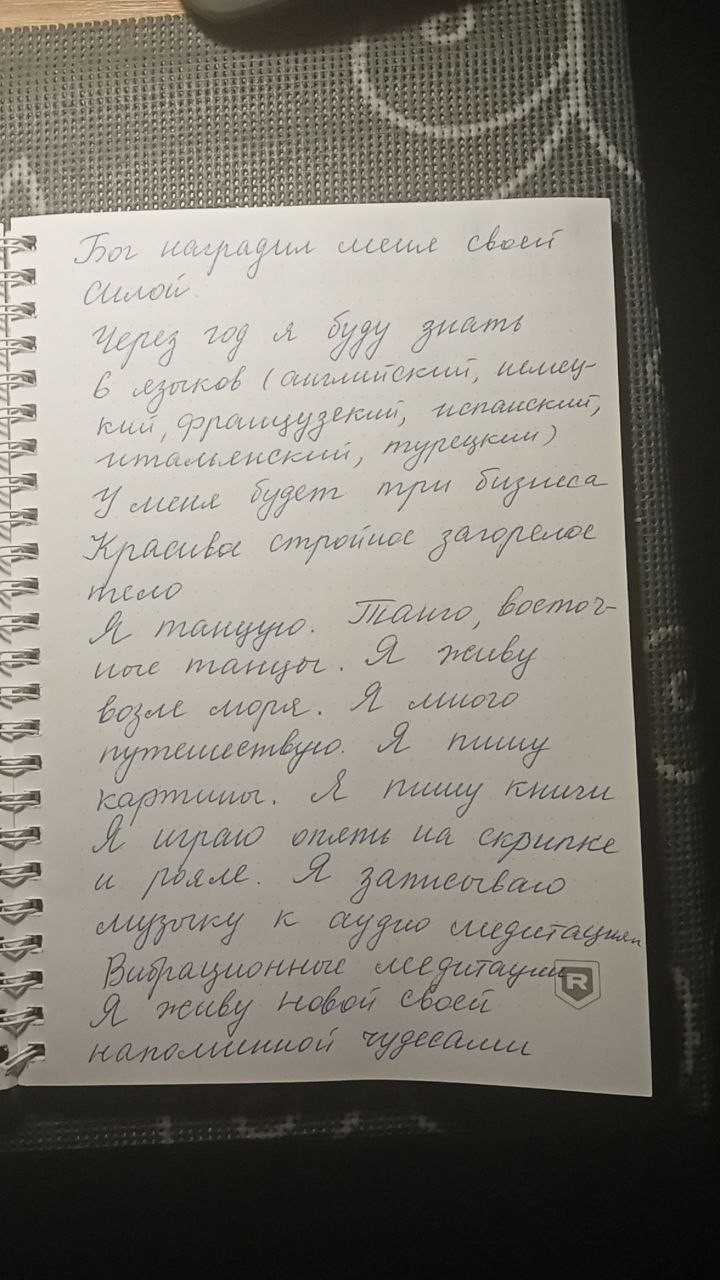 Бог наградил меня своей
силой.
Через год я буду знать
6 языков (английский, немец-
кий, французский, испанский,
итальянский, турецкий)
У меня будет три бизнеса
Красивое стройное загорелое
тело
Я танцую. Танго, восточ-
ные танцы. Я живу
возле моря. Я много
путешествую. Я пишу
картины. Я пишу книги
Я играю опять на скрипке
и рояле. Я записываю
музыку к аудио медитациям
Вибрационные медитации
R
Я живу новой своей
наполненной чудесами